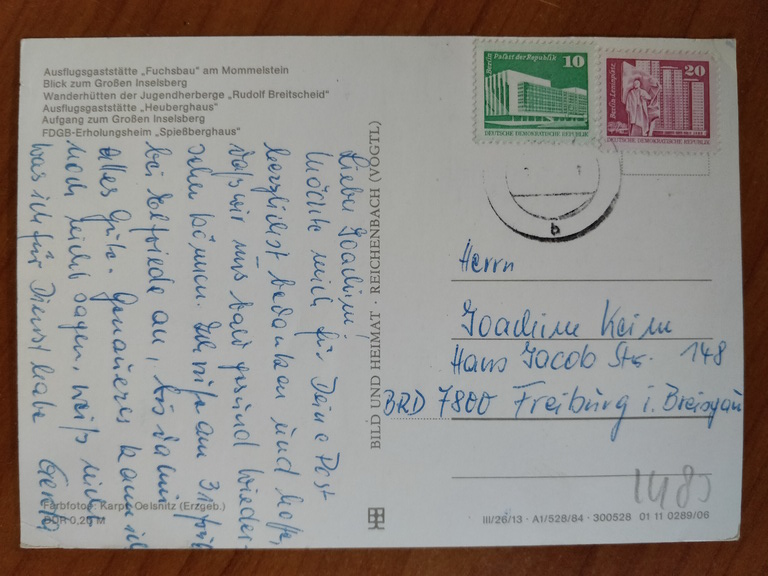 Ausflugsgaststätte „Fuchsbau" am Mommelstein
Blick zum Großen Inselsberg
Wanderhütten der Jugendherberge „Rudolf Breitscheid"
Ausflugsgaststätte „Heuberghaus"
Aufgang zum Großen Inselsberg
FDGB-Erholungsheim „Spießberghaus"
Lieber Joachim!
Möchte mich für Deine Post
herzlichst bedanken und hoffe,
daß wir uns bald gesund wieder-
sehen können. Ich rufe am 31. früh
bei Elfriede an, bis dahin
alles Gute. Genaueres kann ich
noch nicht sagen, weiß nicht
was ich für Dienst habe
Farbfotos: Karpf, Oelsnitz (Erzgeb.)
DDR 0,25 M
BILD UND HEIMAT · REICHENBACH (VOGTL)
Berlin Palast der Republik
10
DEUTSCHE DEMOKRATISCHE REPUBLIK
Berlin Leninplatz
20
DEUTSCHE DEMOKRATISCHE REPUBLIK
b
Herrn
Joachim Keim
Hans Jacob Str. 148
BRD 7800 Freiburg i. Breisgau
III/26/13 · A1/528/84 · 300528 01 11 0289/06